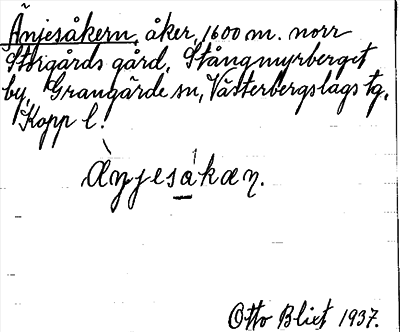 Änjesåkern, åker, 1600 m. norr
Storgårds gård, Stångmyrberget
by, Grangärde sn, Västerbergslags tg,
Kopp l.
Äŋjesa̲kæṇ.
Otto Blixt 1937.